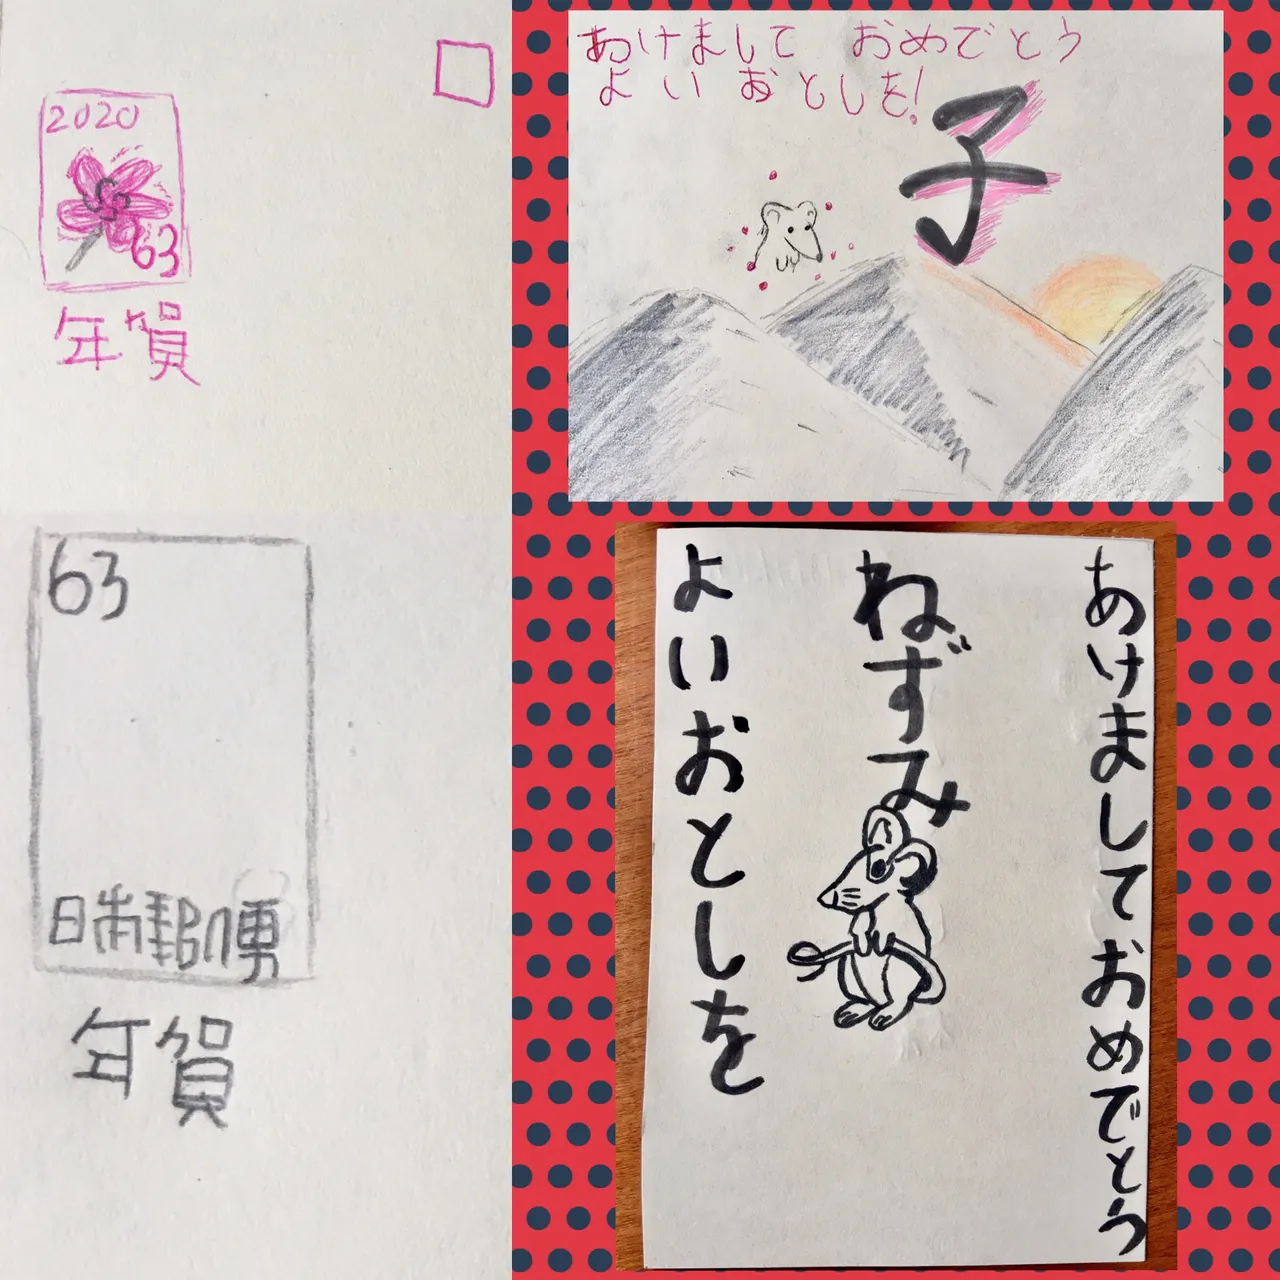 2020
63
年賀
あけまして おめでとう
よい おとしを!
子
63
日本郵便
年賀
あけましておめでとう
ねずみ
よいおとしを